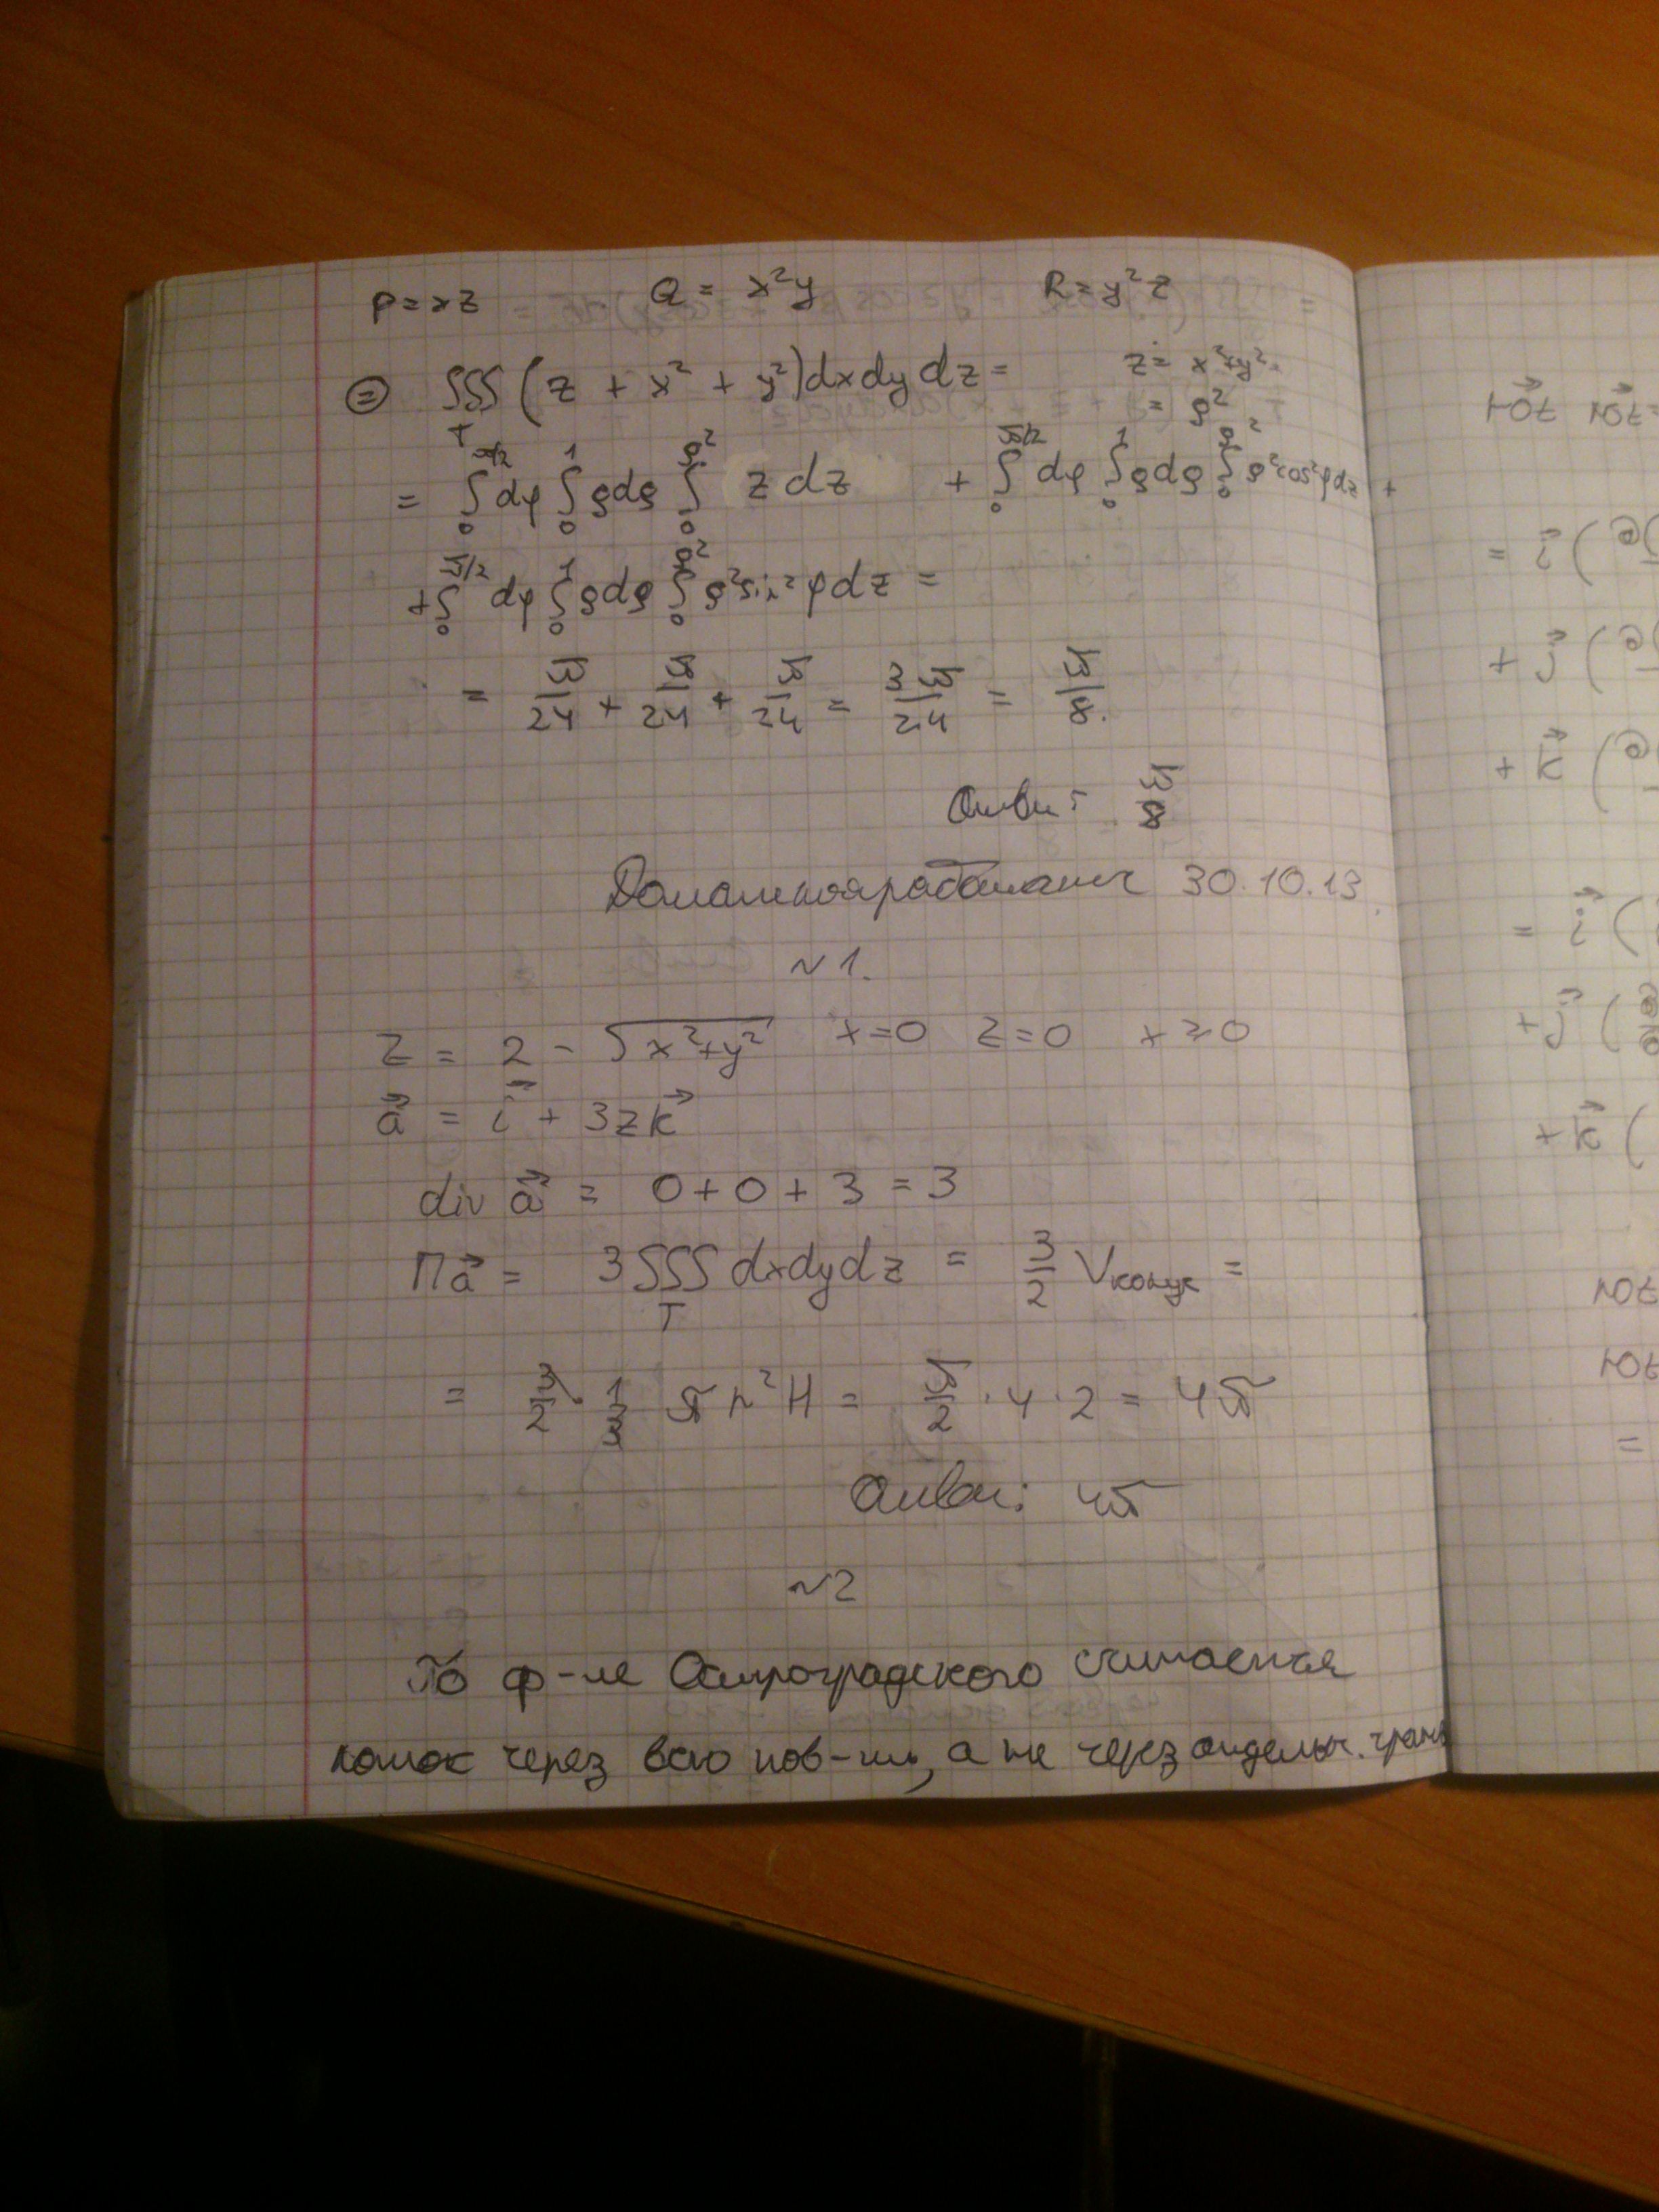 P = xz Q = x²y R = y²z
⊜ ∭_T (z + x² + y²) dx dy dz = z = x² + y² =
= ρ²
= ∫₀^{π/2} dφ ∫₀¹ ρdρ ∫₀^{ρ²} z dz + ∫₀^{π/2} dφ ∫₀¹ ρdρ ∫₀^{ρ²} ρ² cos² φ dz +
+ ∫₀^{π/2} dφ ∫₀¹ ρdρ ∫₀^{ρ²} ρ² sin² φ dz =
= π/24 + π/24 + π/24 = 3π/24 = π/8.
Ответ: π/8
Домашняя работа на 30.10.13
№1.
z = 2 - √(x² + y²) x = 0 z = 0 x ≥ 0
a⃗ = i⃗ + 3zk⃗
div a⃗ = 0 + 0 + 3 = 3
Πa⃗ = 3∭_T dx dy dz = 3/2 V конуса =
= 3/2 · 1/3 π r² H = π/2 · 4 · 2 = 4π
Ответ: 4π
№2
По ф-ле Остроградского считается
поток через всю пов-ть, а не через отдельн. грань